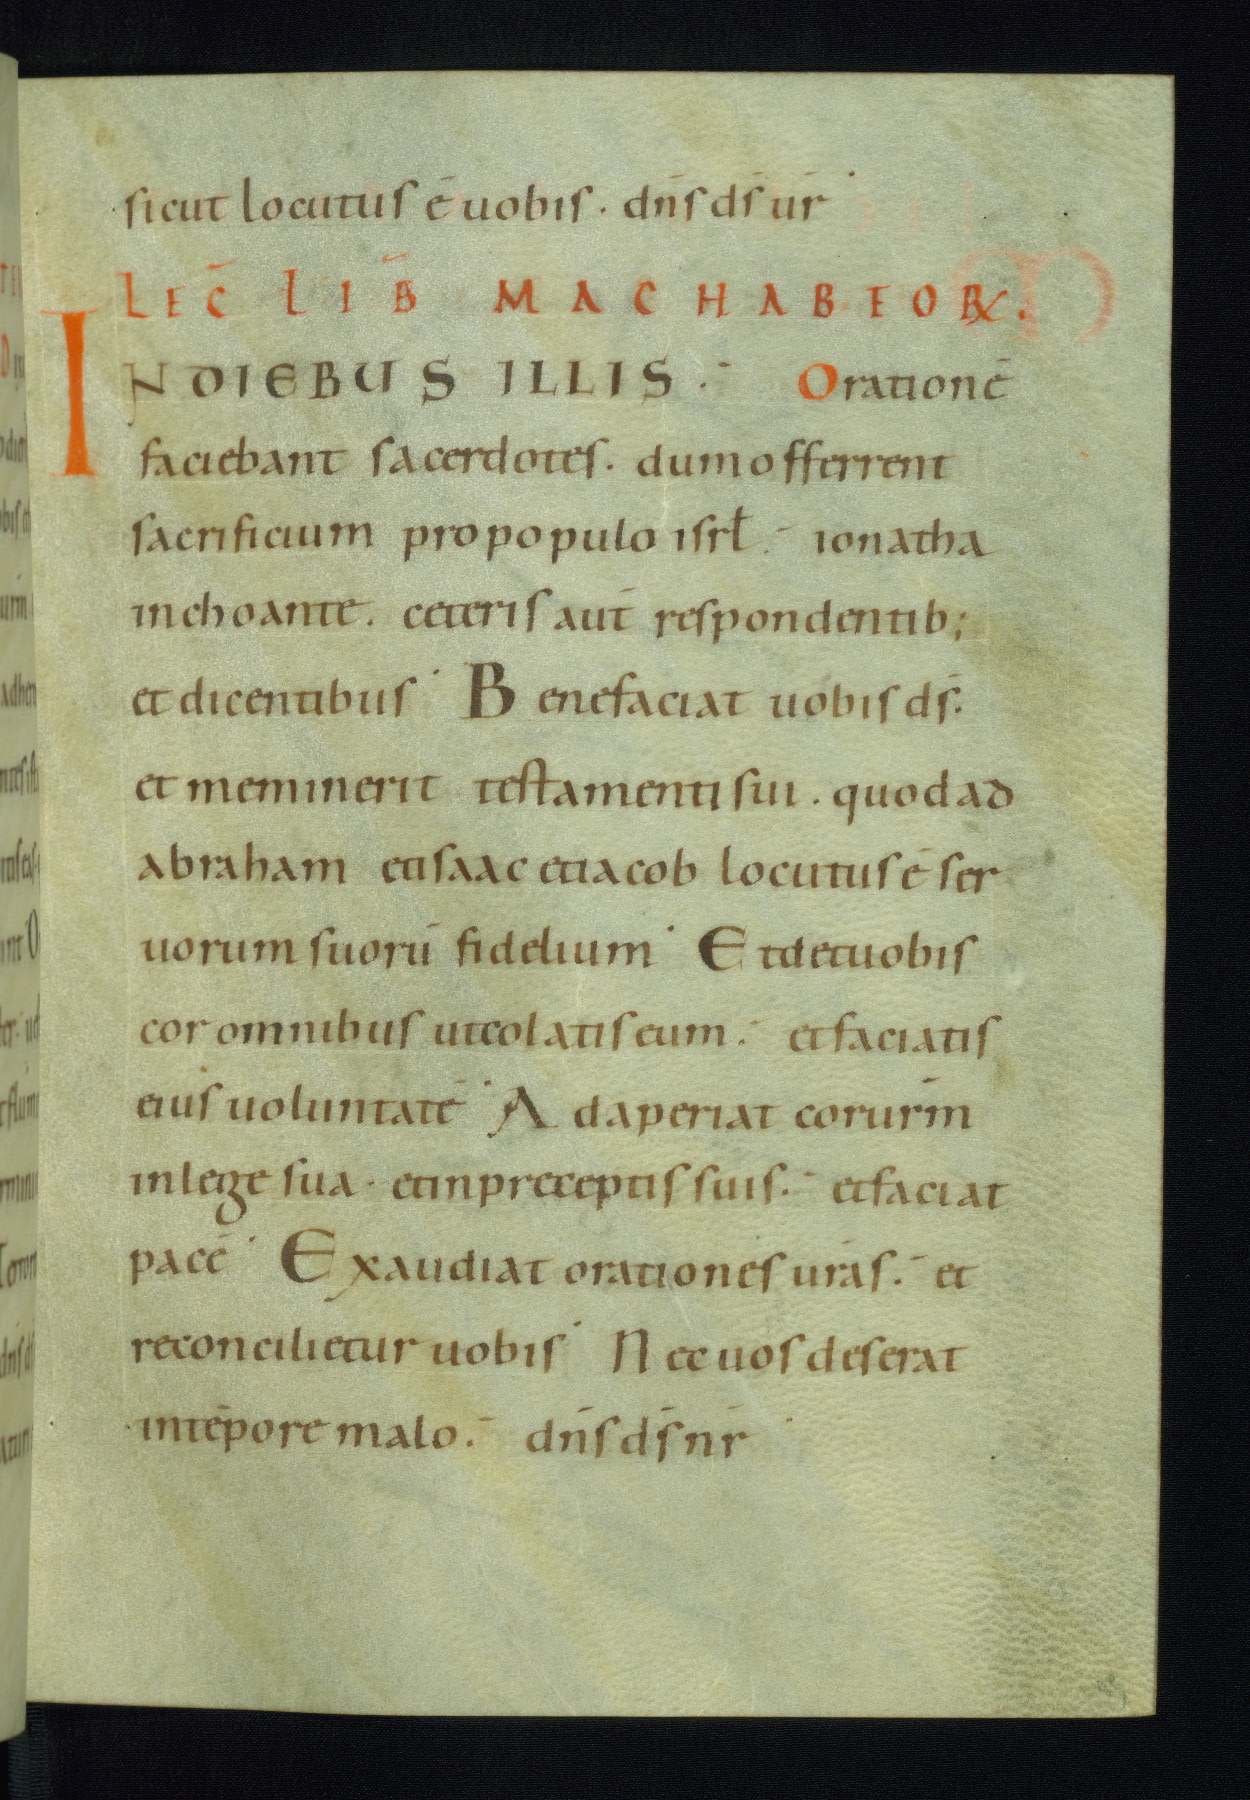 sicut locutus ē uobis. dn̄s ds̄ ur̄
LEC̄ LIB̄ MACHABEORꝝ.
IN DIEBUS ILLIS. Orationē
faciebant sacerdotes. dum offerrent
sacrificium pro populo isrł. ionatha
inchoante. ceteris aut̄ respondentib;
et dicentibus Benefaciat uobis ds̄.
et meminerit testamenti sui. quod ad
abraham et isaac et iacob locutus ē ser
uorum suorū fidelium Et det uobis
cor omnibus ut colatis eum. et faciatis
eius uoluntatē Adaperiat cor urm̄
in lege sua. et in preceptis suis. et faciat
pacē Exaudiat orationes uras̄. et
reconcilietur uobis Nec uos deserat
in tēpore malo. dn̄s ds̄ nr̄